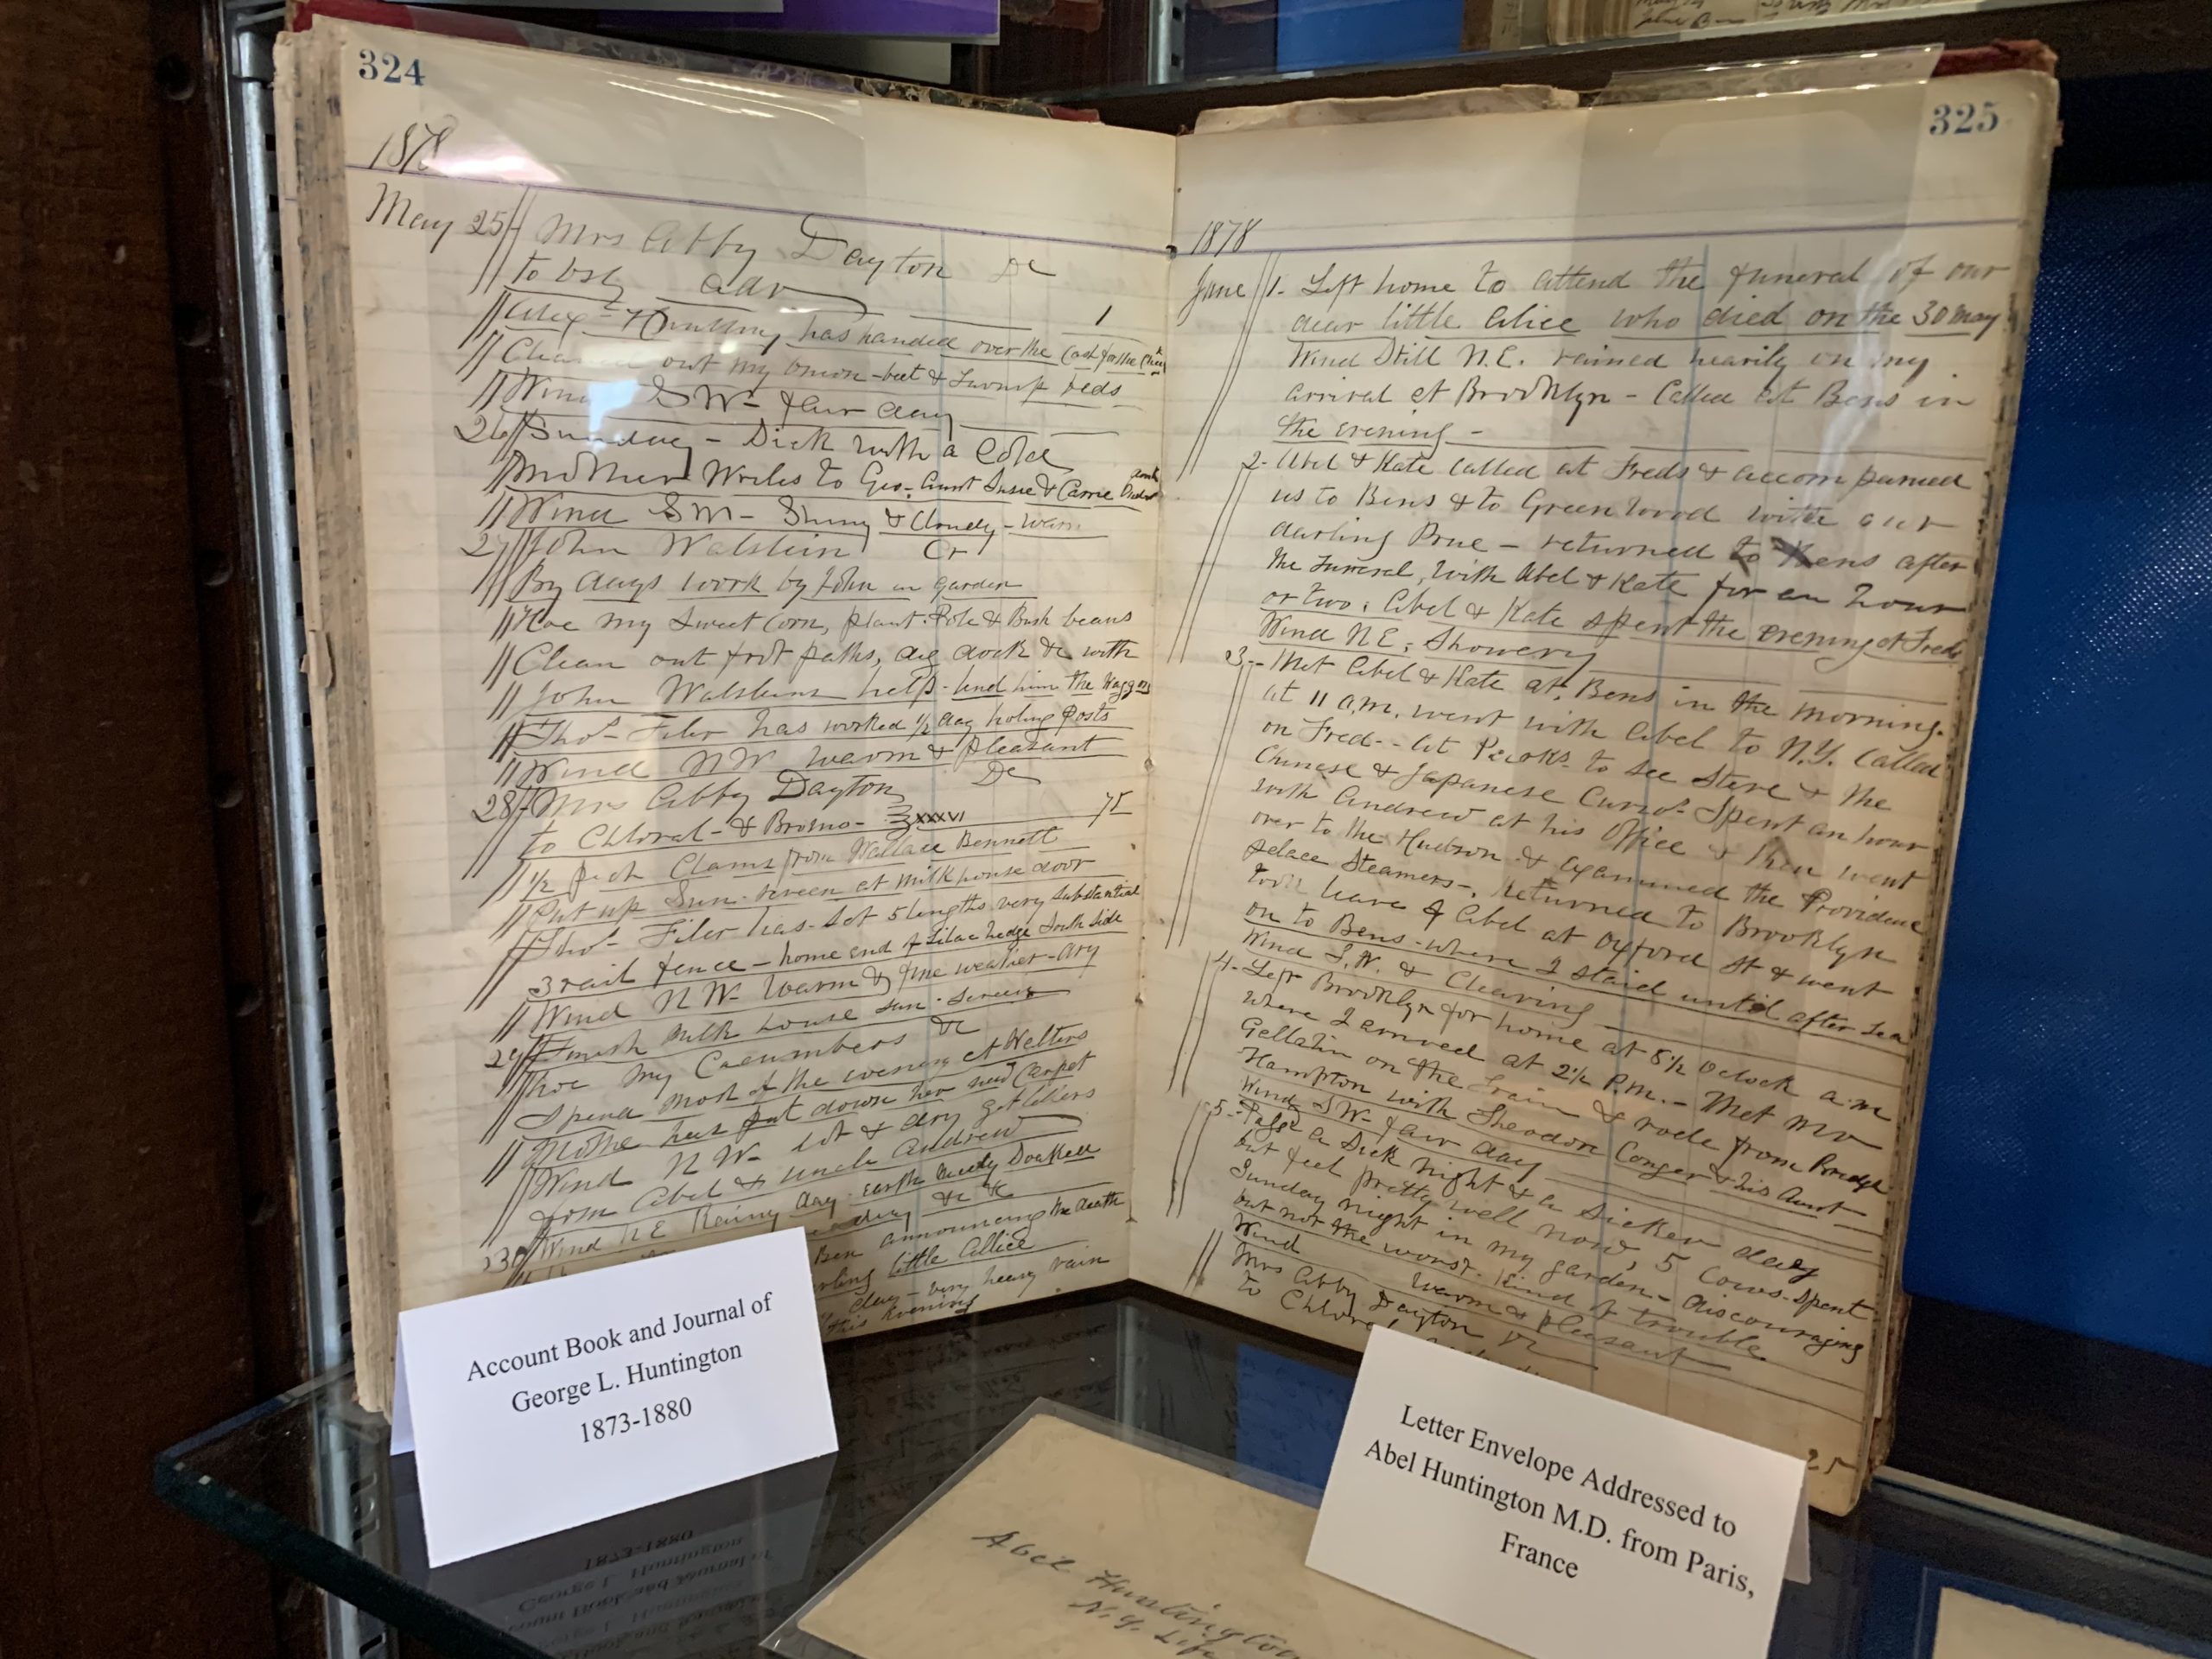 324
1878
May 25 Mrs Abby Dayton Dr
to vst adv 1
has handed over the Cash for the
Cleaned out my onion - beet & Turnip beds
Wind SW - fair day
26 Sunday - Dick with a Cold
Mother Writes to Geo. Aunt Susie & Carrie
Wind SW - Shiny & Cloudy - warm
27 John Walstein Cr
By days work by John in garden
Hoe my Sweet Corn, plant Pole & Bush beans
Clean out foot paths, dig dock &c with
John Walsteins help - lend him the Waggon
Thos Filer has worked 1/2 day holing Posts
Wind NW warm & pleasant
28 Mrs Abby Dayton Dr
to Chloral - & Bromo - ʒxxxvi 75
1/2 peck Clams from Wallace Bennett
Put up Sun-screen at Milkhouse door
Thos Filer has set 5 lengths very substantial
3 rail fence - home end of Lilac hedge South Side
Wind NW - warm & fine weather - dry
29 Finish Milk house sun-screen
hoe my Cucumbers &c
Spend most of the evening at Netties
has put down her new Carpet
Wind NW - hot & dry get letters
from Abel & uncle Andrew
30 Wind NE Rainy day - earth nicely Soaked
&c &c
Ben announcing the death
little Alice
day - very heavy rain
this Evening
325
1878
June 1 - Left home to attend the funeral of our
dear little Alice who died on the 30 May
Wind Still N.E. rained heavily on my
arrival at Brooklyn - Called at Bens in
the evening -
2 - Abel & Kate called at Freds & accompanied
us to Bens & to Greenwood with our
darling Prue - returned to Bens after
the Funeral, with Abel & Kate for an hour
or two. Abel & Kate spent the evening at Freds
Wind NE, Showery
3 - Met Abel & Kate at Bens in the morning.
at 11 a.m. went with Abel to N.Y. Called
on Fred - at to see Steve & the
Chinese & Japanese Curios - Spent an hour
with Andrew at his Office & then went
over to the Hudson & examined the Providence
palace Steamers -. Returned to Brooklyn
took leave of Abel at Oxford St & went
on to Bens - where I staid until after tea
Wind S.W. & Clearing
4 - Left Brooklyn for home at 8 1/2 Oclock a.m
where I arrived at 2 1/2 P.M. - Met Mr
Gellatin on the Train & rode from Bridge
Hampton with Sheodon Conger & his Aunt
Wind SW - fair day
5 - Passd a Sick night & a Sicker day
but feel pretty well now, 5 Cows Spent
Sunday night in my garden - discouraging
but not the worst kind of trouble
Wind warm & pleasant
Mrs Abby Dayton Dr
to Chloral
25
Account Book and Journal of
George L. Huntington
1873-1880
Letter Envelope Addressed to
Abel Huntington M.D. from Paris,
France
Abel Huntington
N.Y. Life